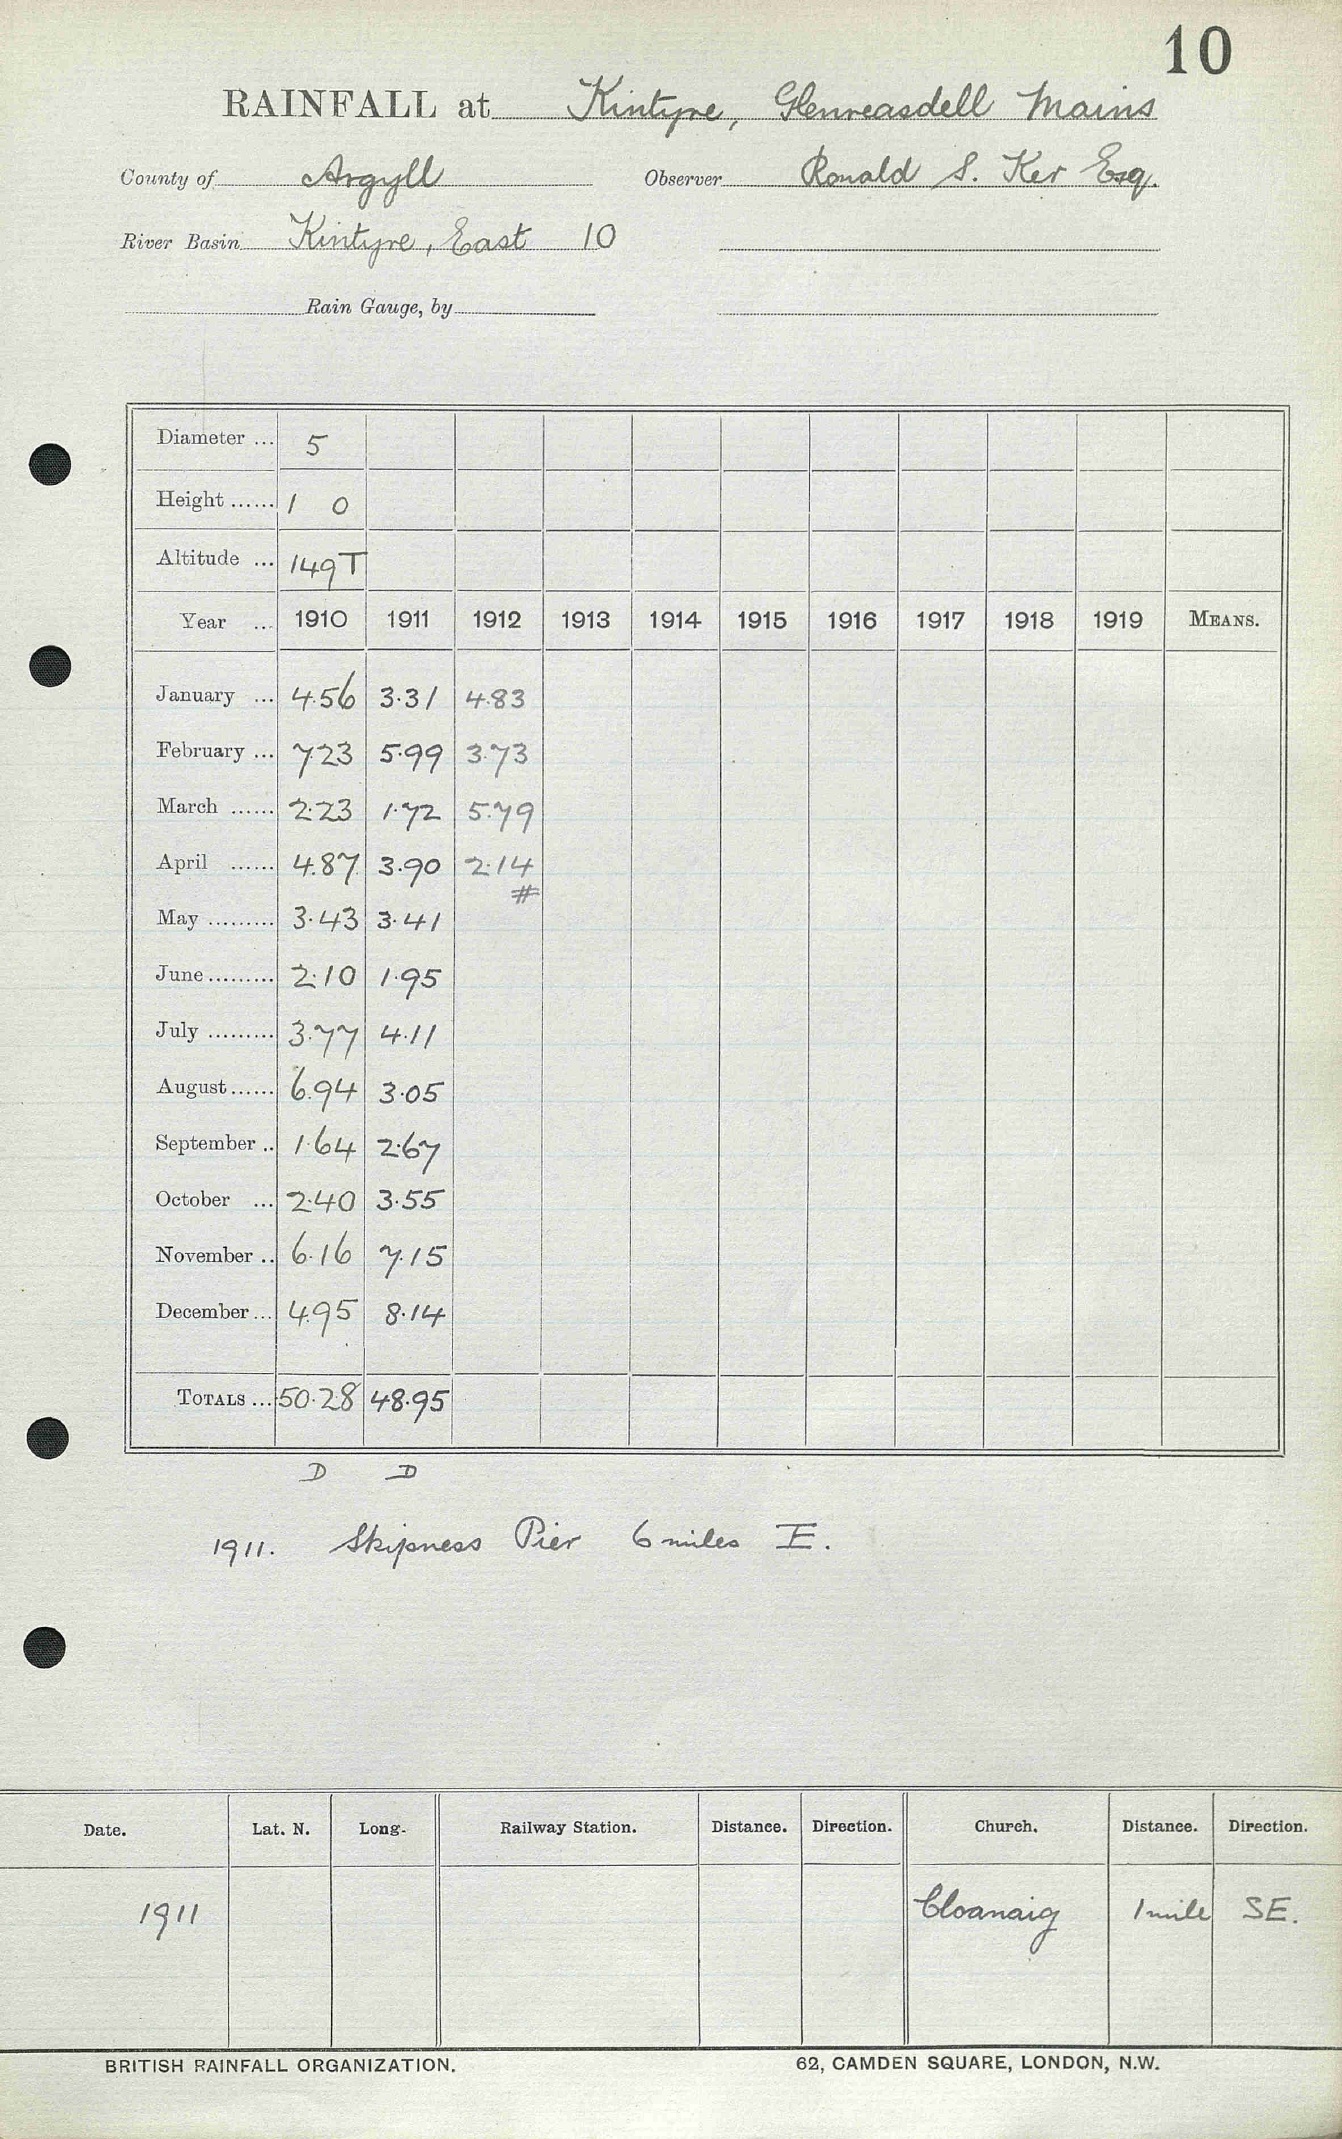 10
RAINFALL at Kintyre, Glenreasdell Mains
County of Argyll Observer Ronald S. Ker Esq.
River Basin Kintyre, East 10
Rain Gauge, by
Diameter ... 5
Height ...... 1 0
Altitude ... 149 T
Year ... 1910 1911 1912 1913 1914 1915 1916 1917 1918 1919 MEANS.
January ... 4.56 3.31 4.83
February ... 7.23 5.99 3.73
March ...... 2.23 1.72 5.79
April ...... 4.87 3.90 2.14
#
May ......... 3.43 3.41
June ......... 2.10 1.95
July ......... 3.77 4.11
August ...... 6.94 3.05
September .. 1.64 2.67
October ... 2.40 3.55
November .. 6.16 7.15
December ... 4.95 8.14
TOTALS ... 50.28 48.95
D D
1911. Skipness Pier 6 miles E.
Date. Lat. N. Long. Railway Station. Distance. Direction. Church. Distance. Direction.
1911 Cloanaig 1 mile SE.
BRITISH RAINFALL ORGANIZATION. 62, CAMDEN SQUARE, LONDON, N.W.